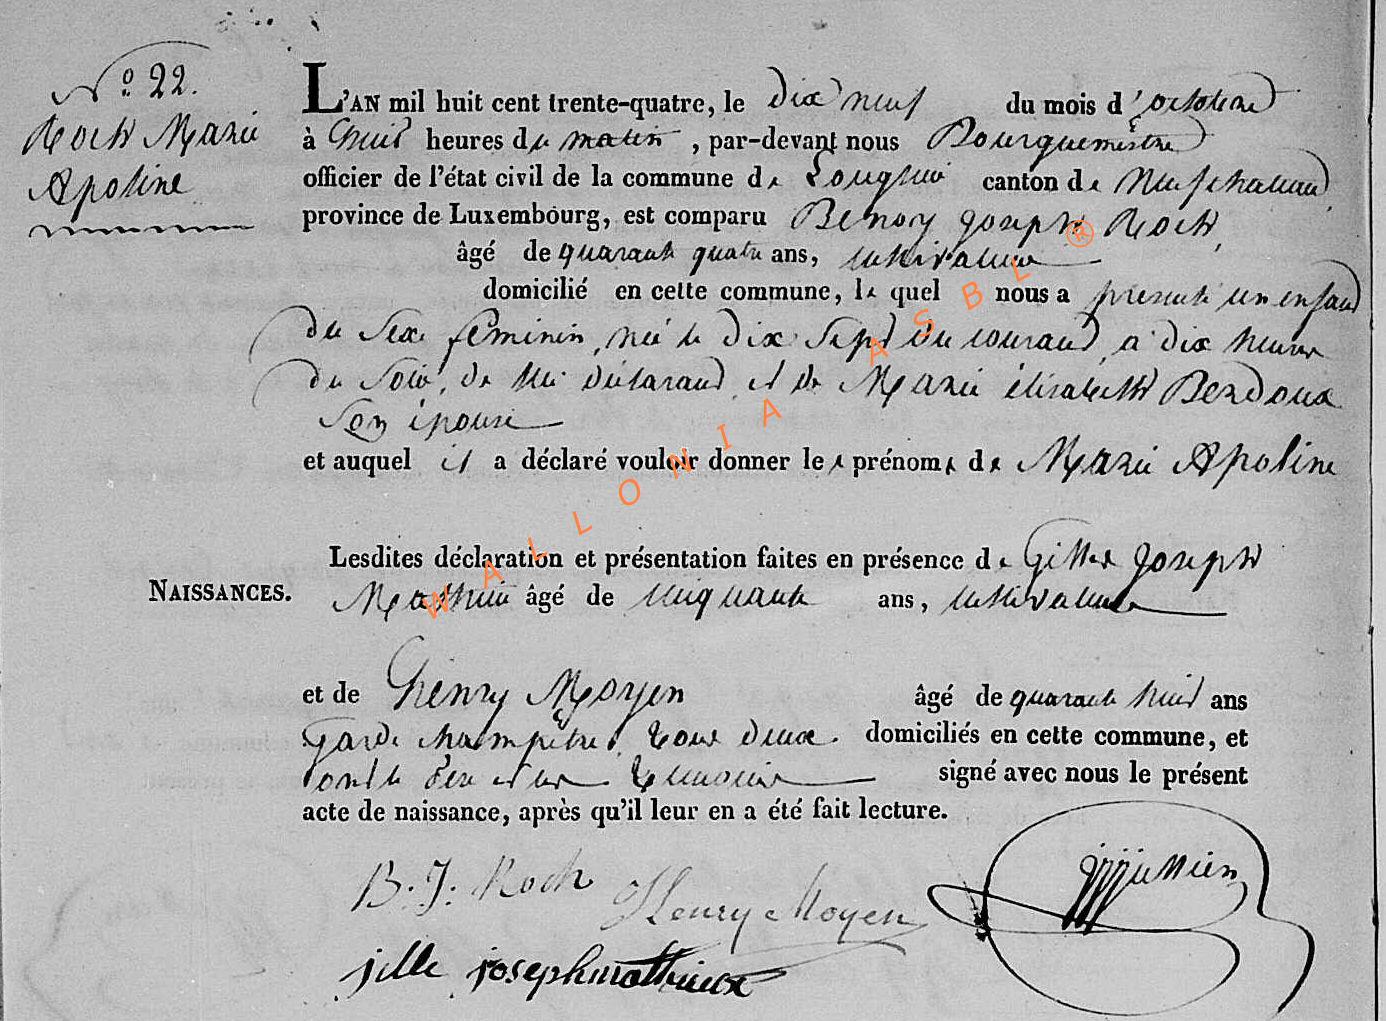 N.º 22.
Roch Marie
Apoline
L'AN mil huit cent trente-quatre, le dix neuf du mois d'octobre
à huit heures du matin, par-devant nous Bourguemestre
officier de l'état civil de la commune de canton de Neufchateau,
province de Luxembourg, est comparu Benoy Joseph Roch,
âgé de quarante quatre ans, cultivateur
domicilié en cette commune, le quel nous a presenté un enfant
du sexe feminin, née le dix sept du courant, à dix heures
du soir, de lui déclarant et de Marie élisabeth Bendoux
son épouse
et auquel il a déclaré vouloir donner les prénoms de Marie Apoline
Lesdites déclaration et présentation faites en présence de Gille Joseph
NAISSANCES. Mathieu âgé de cinquante ans, cultivateur
et de henry Moyen âgé de quarante huit ans
Garde champêtre, tous deux domiciliés en cette commune, et
signé avec nous le présent
acte de naissance, après qu'il leur en a été fait lecture.
B. J. Roch
Henry Moyen
jille josephmathieux
WALLONIA ASBL ®